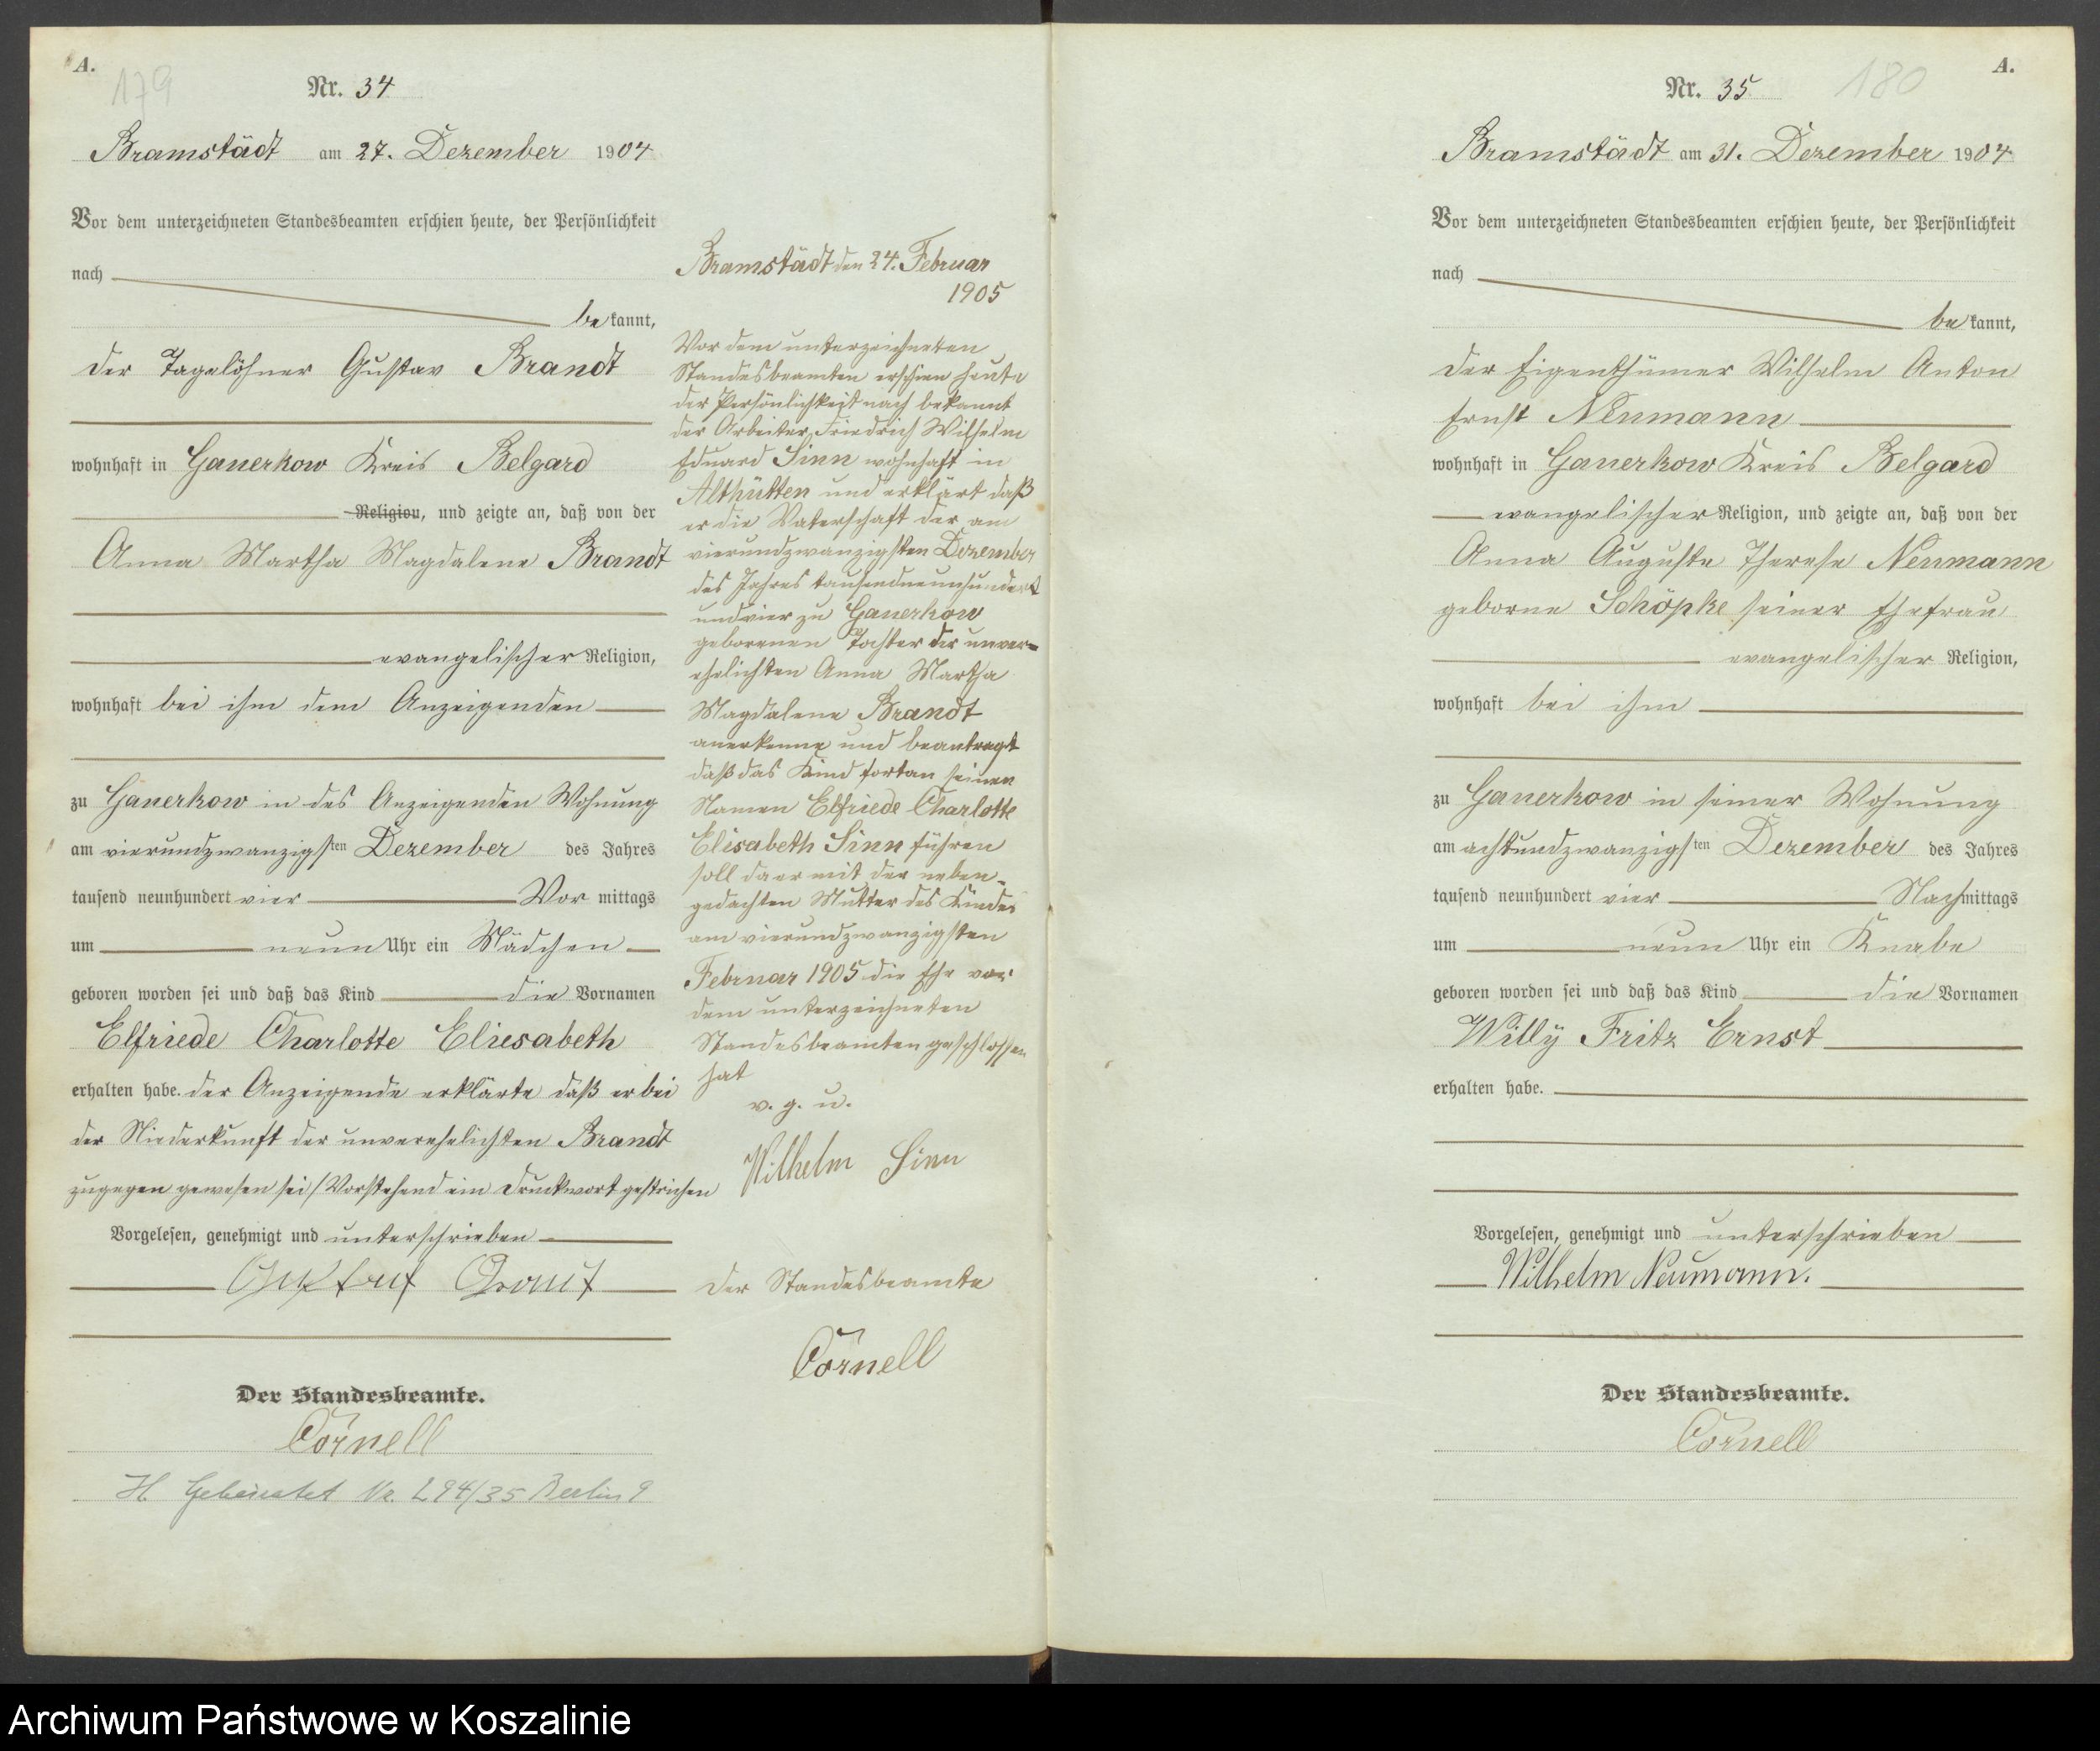 A.
179
Nr. 34
Bramstädt am 27. Dezember 1904
Vor dem unterzeichneten Standesbeamten erschien heute, der Persönlichkeit
nach
be kannt,
der Tagelöhner Gustav Brandt
wohnhaft in Ganerkow Kreis Belgard
Religion, und zeigte an, daß von der
Anna Martha Magdalene Brandt
evangelischer Religion,
wohnhaft bei ihm dem Anzeigenden
zu Ganerkow in des Anzeigenden Wohnung
am vierundzwanzigsten Dezember des Jahres
tausend neunhundert vier Vor mittags
um neun Uhr ein Mädchen
geboren worden sei und daß das Kind die Vornamen
Elfriede Charlotte Eliesabeth
erhalten habe. der Anzeigende erklärte daß er bei
der Niederkunft der unverehelichten Brandt
zugegen gewesen sei/Vorstehend ein Druckwort gestrichen
Vorgelesen, genehmigt und unterschrieben
Gustav Brandt
Der Standesbeamte.
Cörnell
H. Geheiratet Nr. 294/35 Berlin 9
Bramstädt den 24. Februar
1905
Vor dem unterzeichneten
Standesbeamten erschien heute
der Persönlichkeit nach bekannt
der Arbeiter Friedrich Wilhelm
Eduard Sinn wohnhaft in
Althütten und erklärt daß
er die Vaterschaft der am
vierundzwanzigsten Dezember
des Jahres tausendneunhundert
und vier zu Ganerkow
geborenen Tochter der unver=
ehelichten Anna Martha
Magdalene Brandt
anerkenne und beantragt
daß das Kind fortan seinen
Namen Elfriede Charlotte
Elisabeth Sinn führen
soll da er mit der neben-
gedachten Mutter des Kindes
am vierundzwanzigsten
Februar 1905 die Ehe vor
dem unterzeichneten
Standesbeamten geschlossen
hat
v. g. u.
Wilhelm Sinn
Der Standesbeamte
Cörnell
A.
180
Nr. 35
Bramstädt am 31. Dezember 1904
Vor dem unterzeichneten Standesbeamten erschien heute, der Persönlichkeit
nach
be kannt,
der Eigenthümer Wilhelm Anton
Ernst Neumann
wohnhaft in Ganerkow Kreis Belgard
evangelischer Religion, und zeigte an, daß von der
Anna Auguste Therese Neumann
geborne Schöpke seiner Ehefrau
evangelischer Religion,
wohnhaft bei ihm
zu Ganerkow in seiner Wohnung
am achtundzwanzigsten Dezember des Jahres
tausend neunhundert vier Nachmittags
um neun Uhr ein Knabe
geboren worden sei und daß das Kind die Vornamen
Willy Fritz Ernst
erhalten habe.
Vorgelesen, genehmigt und unterschrieben
Wilhelm Neumann.
Der Standesbeamte.
Cörnell
Archiwum Państwowe w Koszalinie